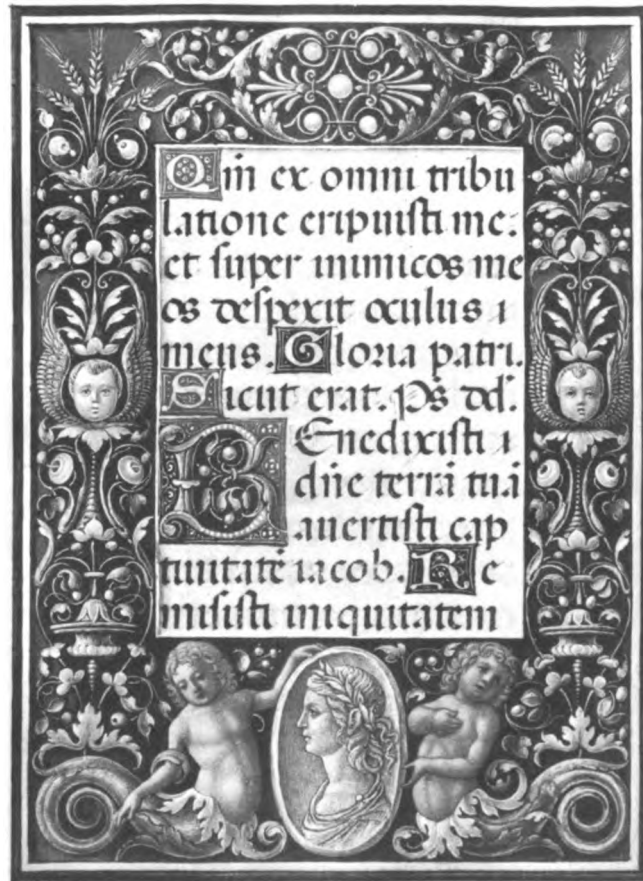 Qm̄ ex omni tribu
latione eripuisti me:
et super inimicos me
os despexit oculus ı
meus. Gloria patri.
Sicut erat. Ps dd̄.
BEnedixisti ı
dn̄e terrā tuā
auertisti cap
tiuitatē iacob. Re
misisti iniquitatem